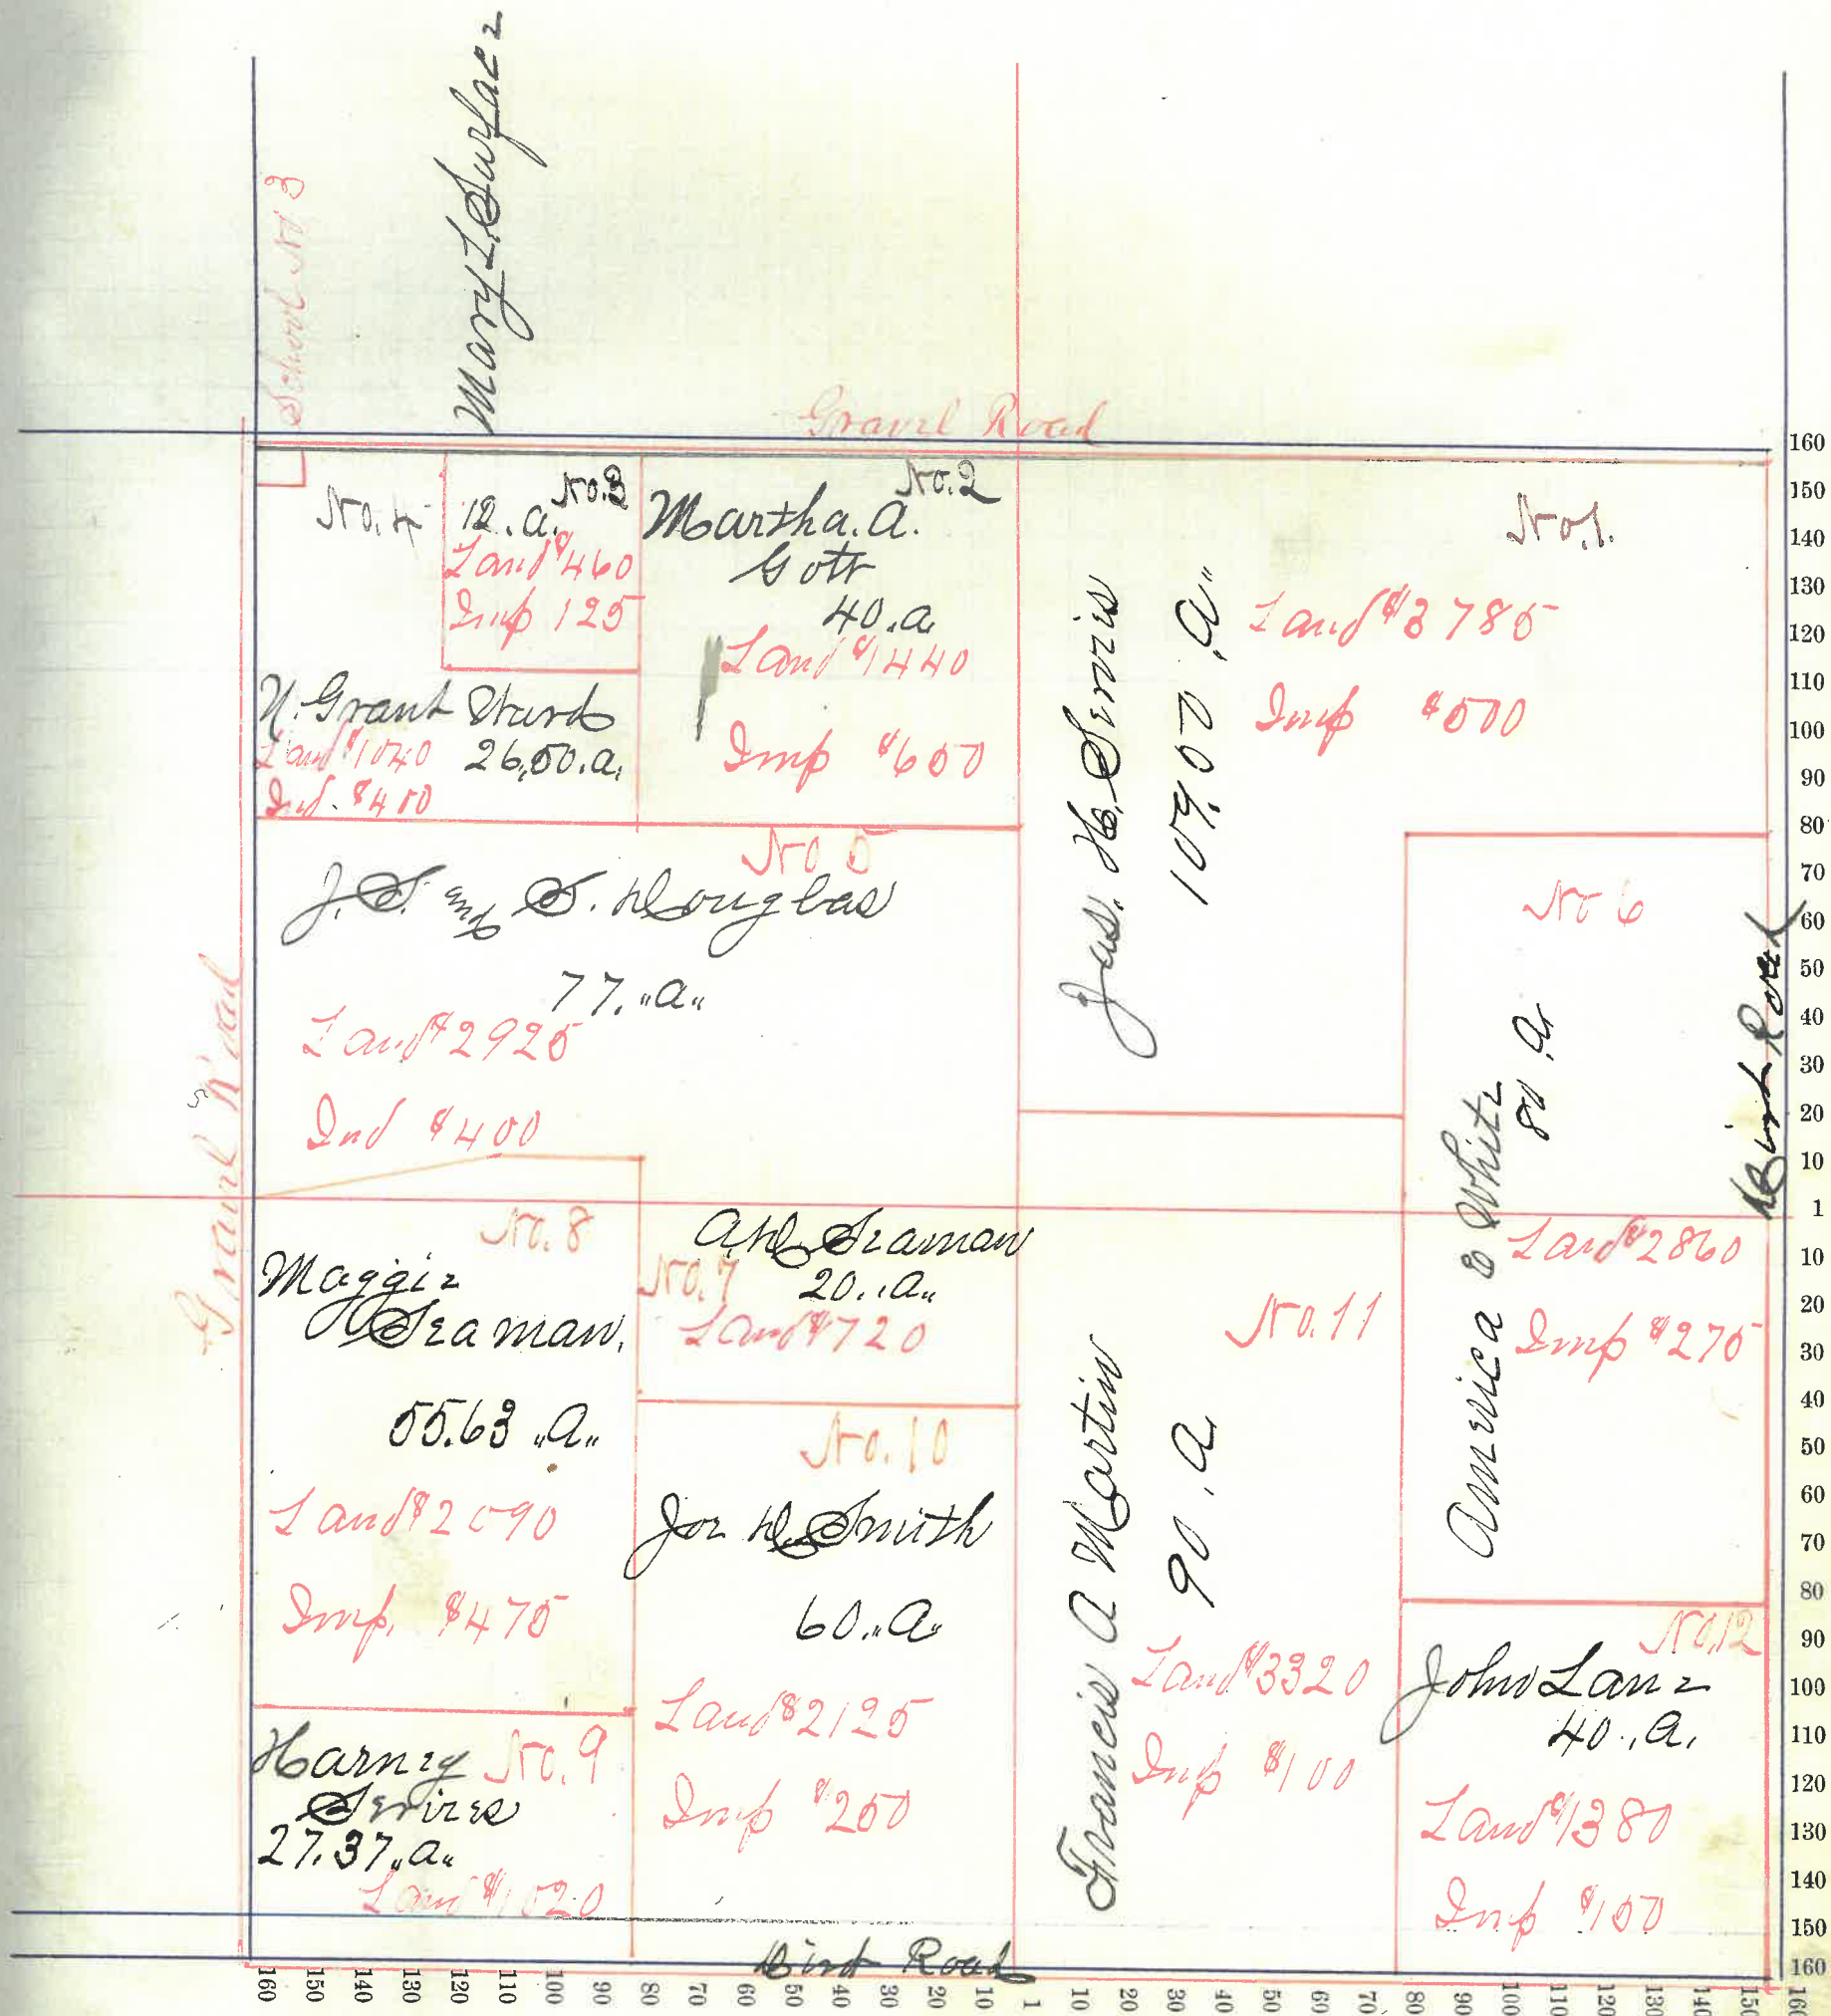 Mary L. Surface
School No 3
Gravel Road
No. 4
No. 3
12. a.
Land $460
Imp 125
No. 2
Martha. A.
Gott
40. a
Land $1440
Imp $600
No. 1.
Jas. H. Servies
109.00 "a"
Land $3785
Imp $500
N. Grant Ward
26,50. a.
Land $1040
Ind. $400
No 5
J. S. and S. Douglas
77. "a"
Land $2925
Ind $400
No 6
America E White
80. a.
Land $2860
Imp $275
Dirt Road
Gravel Road
No. 8
Maggie
Seaman.
55.63 "a"
Land $2090
Imp. $475
No. 7
A. D. Seaman
20. "a"
Land $720
No. 10
Joe D. Smith
60. "a"
Land $2125
Imp $250
No. 11
Francis A Martin
90. a.
Land $3320
Imp $100
No, 12
John Lane
40., a.
Land $1380
Imp $150
No. 9
Harney
Servies
27.37 "a"
Land $1020
Dirt Road
160
150
140
130
120
110
100
90
80
70
60
50
40
30
20
10
1
10
20
30
40
50
60
70
80
90
100
110
120
130
140
150
160
160 150 140 130 120 110 100 90 80 70 60 50 40 30 20 10 1 10 20 30 40 50 60 70 80 90 100 110 120 130 140 150 160